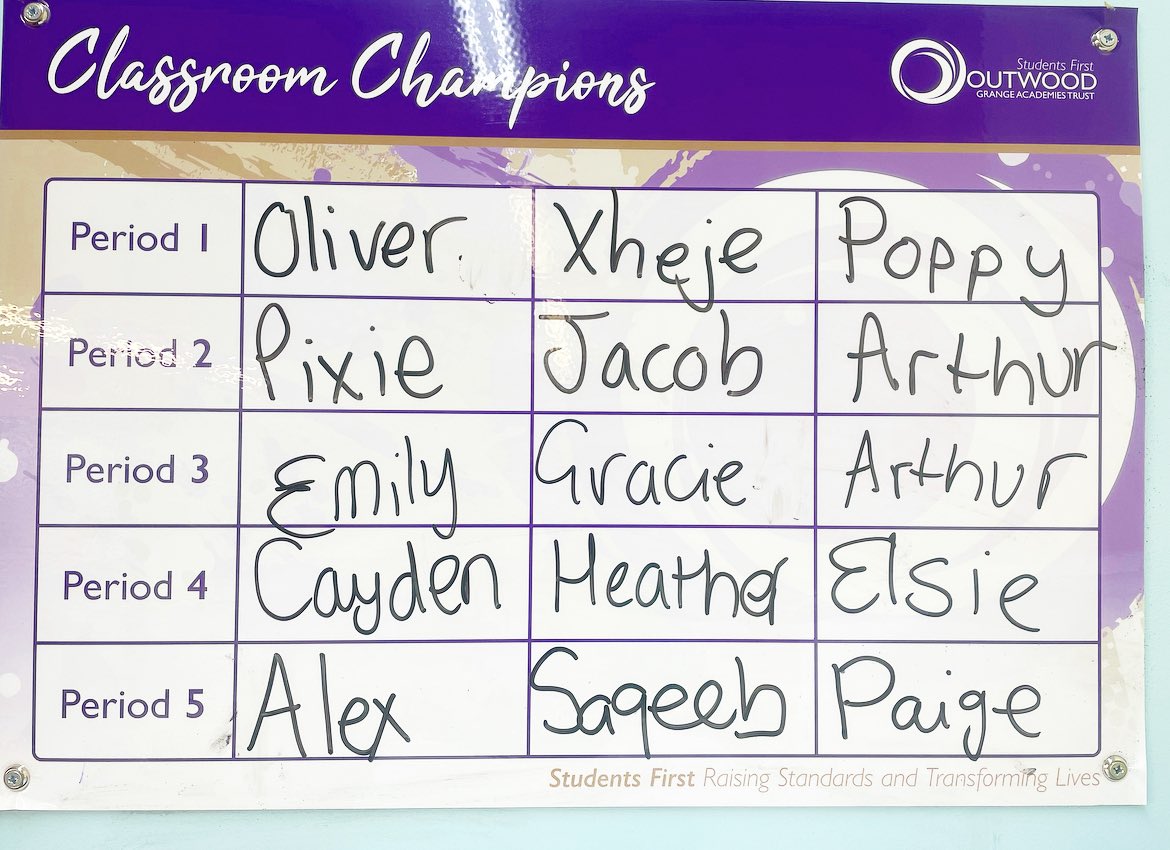 Classroom Champions
Students First
OUTWOOD
GRANGE ACADEMIES TRUST
Period 1 Oliver Xheje Poppy
Period 2 Pixie Jacob Arthur
Period 3 Emily Gracie Arthur
Period 4 Cayden Heather Elsie
Period 5 Alex Saqeeb Paige
Students First Raising Standards and Transforming Lives